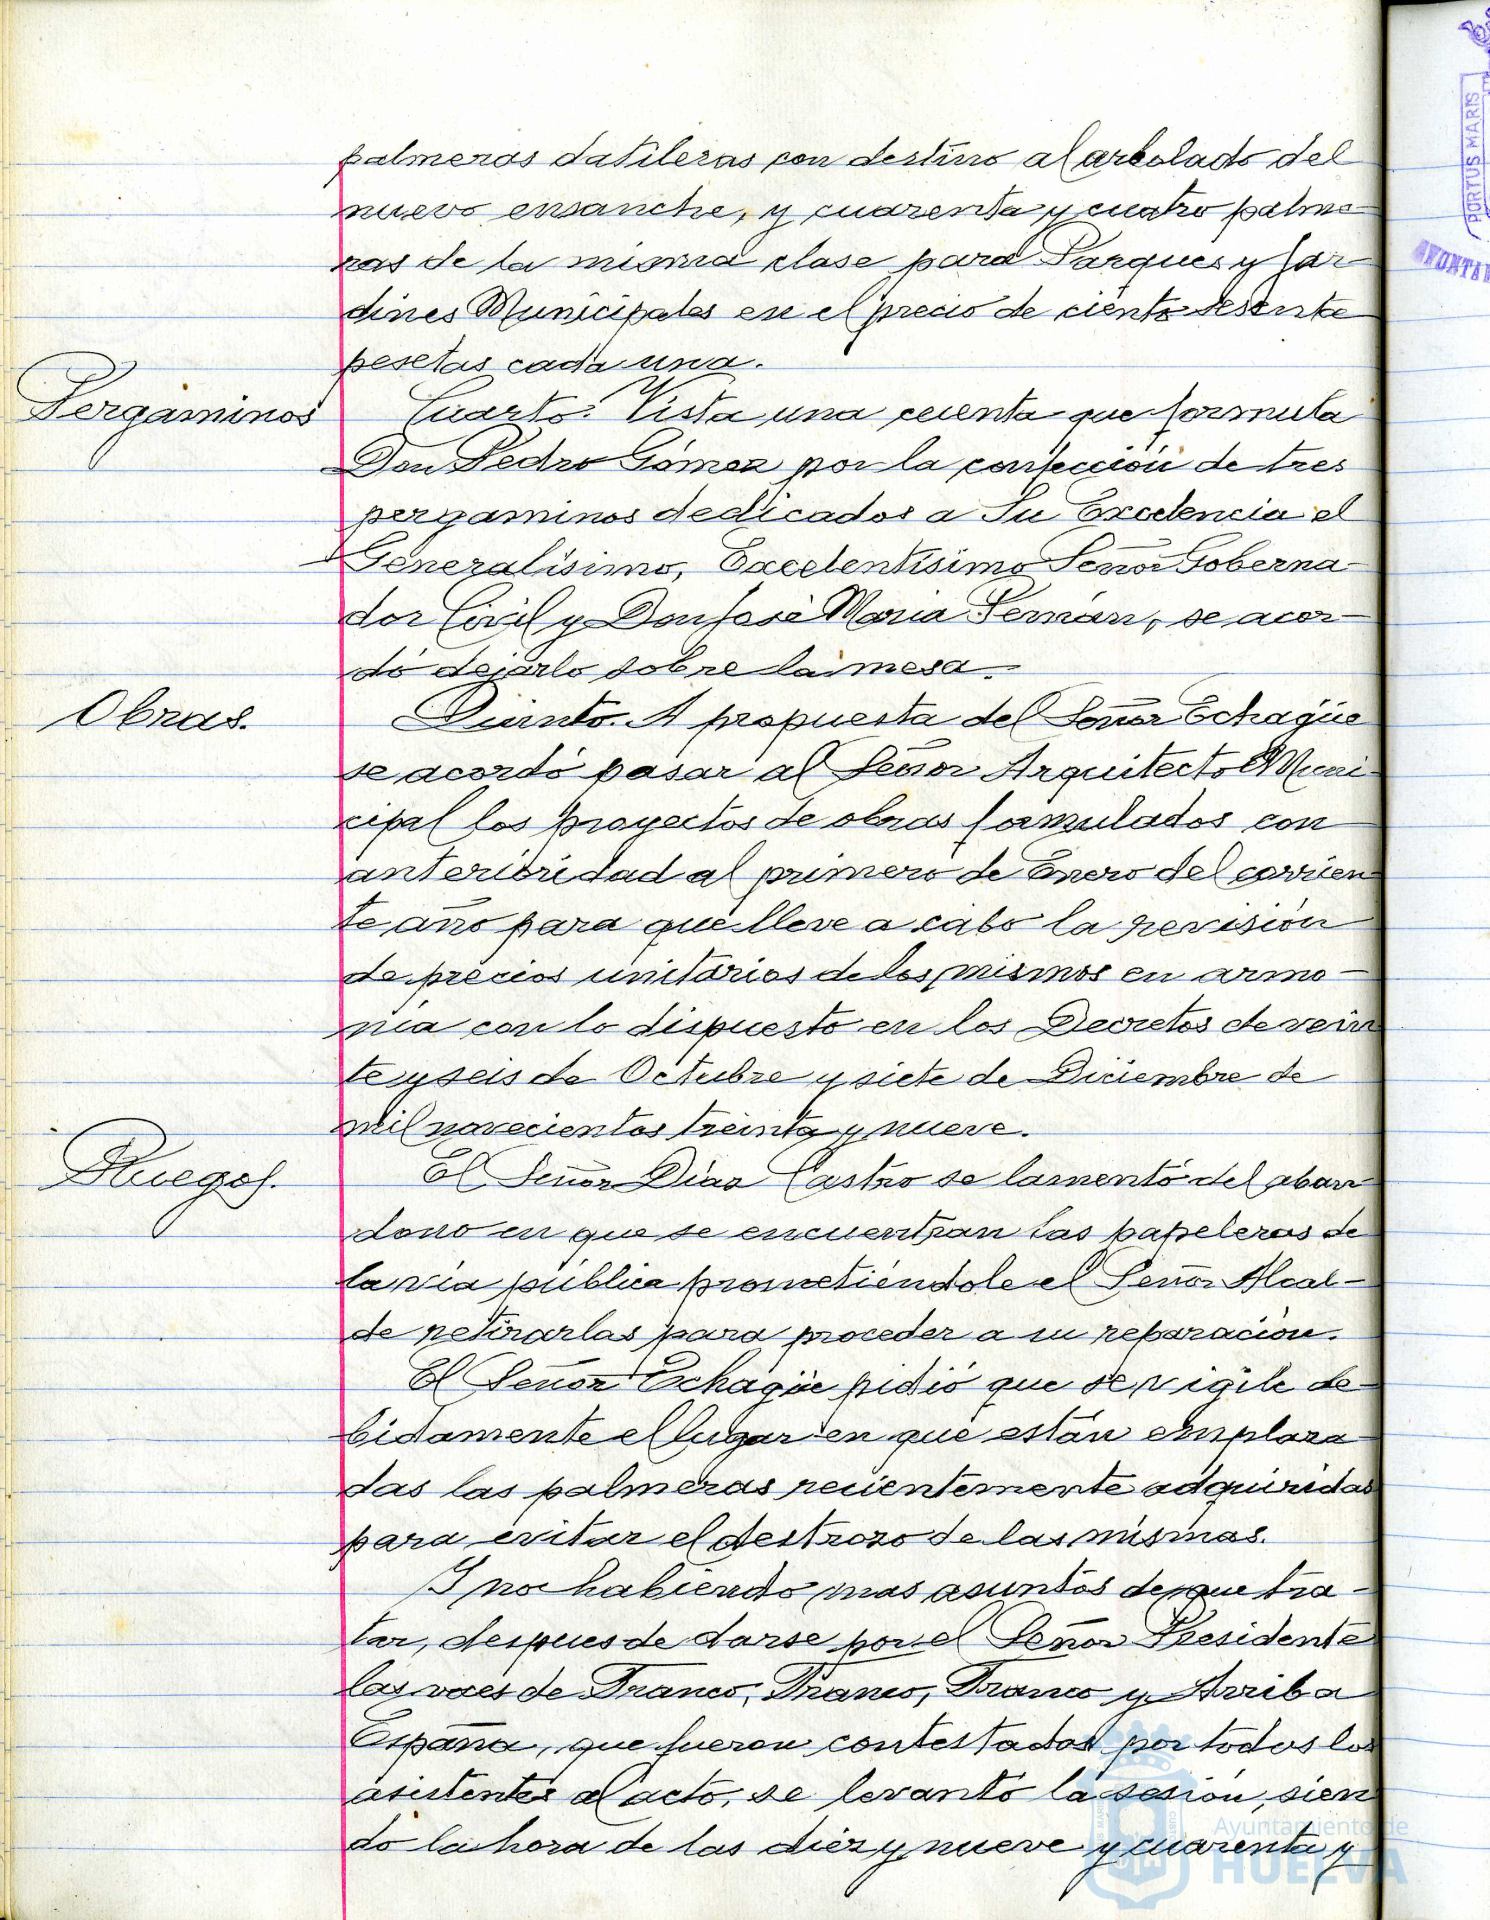 palmeras datileras con destino al arbolado del
nuevo ensanche, y cuarenta y cuatro palme-
ras de la misma clase para Parques y Jar-
dines Municipales en el precio de ciento sesenta
pesetas cada una.
Pergaminos
Cuarto. Vista una cuenta que formula
Don Pedro Gómez por la confección de tres
pergaminos dedicados a Su Excelencia el
Generalísimo, Excelentísimo Señor Goberna-
dor Civil y Don José María Pemán, se acor-
dó dejarlo sobre la mesa.
Obras.
Quinto. A propuesta del Señor Echagüe
se acordó pasar al Señor Arquitecto Muni-
cipal los proyectos de obras formulados con
anterioridad al primero de Enero del corrien-
te año para que lleve a cabo la revisión
de precios unitarios de los mismos en armo-
nía con lo dispuesto en los Decretos de vein
te y seis de Octubre y siete de Diciembre de
mil novecientos treinta y nueve.
Ruegos.
El Señor Díaz Castro se lamentó del aban
dono en que se encuentran las papeleras de
la vía pública prometiéndole el Señor Alcal-
de retirarlas para proceder a su reparación.
El Señor Echagüe pidió que se vigile de-
bidamente el lugar en que están emplaza-
das las palmeras recientemente adquiridas
para evitar el destrozo de las mismas.
Y no habiendo mas asuntos de que tra-
tar, después de darse por el Señor Presidente
las voces de Franco, Franco, Franco y Arriba
España, que fueron contestadas por todos los
asistentes al acto, se levantó la sesión, sien
do la hora de las diez y nueve y cuarenta y
PORTUS MARIS
Ayuntamiento de
HUELVA